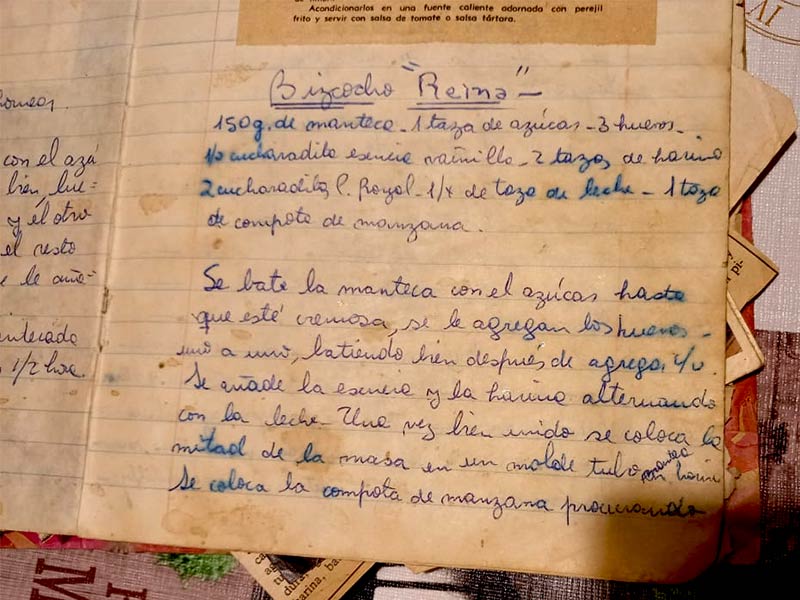 Acondicionarlos en una fuente caliente adornada con perejil
frito y servir con salsa de tomate o salsa tártara.
con el azú
bien, lue=
y el otro
el resto
le aña=
1/2 hora.
Bizcocho "Reina" -
150g. de manteca - 1 taza de azúcar - 3 huevos -
1/2 cucharadita esencia vainilla - 2 tazas de harina
2 cucharaditas P. Royal - 1/4 de taza de leche - 1 taza
de compota de manzana.
Se bate la manteca con el azúcar hasta
que esté cremosa, se le agregan los huevos -
uno a uno, batiendo bien después de agregar c/u.
Se añade la esencia y la harina alternando
con la leche - Una vez bien unido se coloca la
mitad de la masa en un molde tubo
Se coloca la compota de manzana procurando